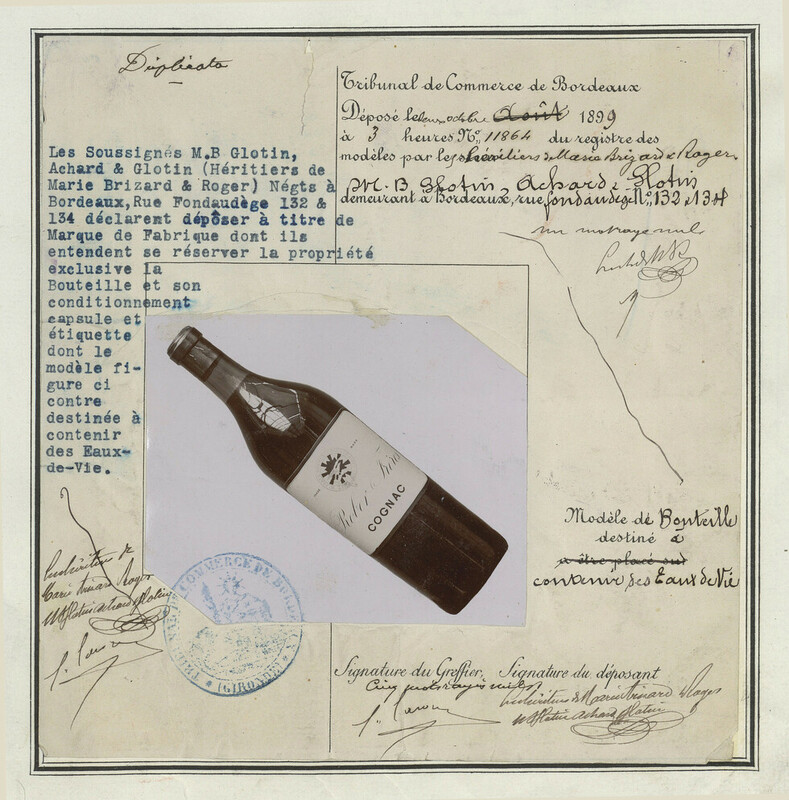 Duplicata
Les Soussignés M.B Glotin,
Achard & Glotin (Héritiers de
Marie Brizard & Roger) Négts à
Bordeaux,Rue Fondaudège 132 &
134 déclarent déposer à titre de
Marque de Fabrique dont ils
entendent se réserver la propriété
exclusive la
Bouteille et son
conditionnement
capsule et
étiquette
dont le
modèle fi-
gure ci
contre
destinée à
contenir
des Eaux-
de-Vie.
Tribunal de Commerce de Bordeaux
Déposé le octobre Août 1899
à 3 heures No. 11864 du registre des
modèles par les héritiers de Marie Brizard & Roger
M. B. Glotin, Achard & Glotin
demeurant à Bordeaux, rue fondaudège No. 132, 134
un mot rayé nul
COGNAC
Modèle de Bouteille
destiné à
a être placé sur
contenir des Eaux de Vie
Les héritiers de
Marie Brizard & Roger
MB Glotin Achard & Glotin
TRIBUNAL DE COMMERCE DE BORDEAUX
(GIRONDE)
Signature du Greffier, Signature du déposant
Cinq mots rayés nuls
Les héritiers de Marie Brizard & Roger
MB Glotin Achard & Glotin